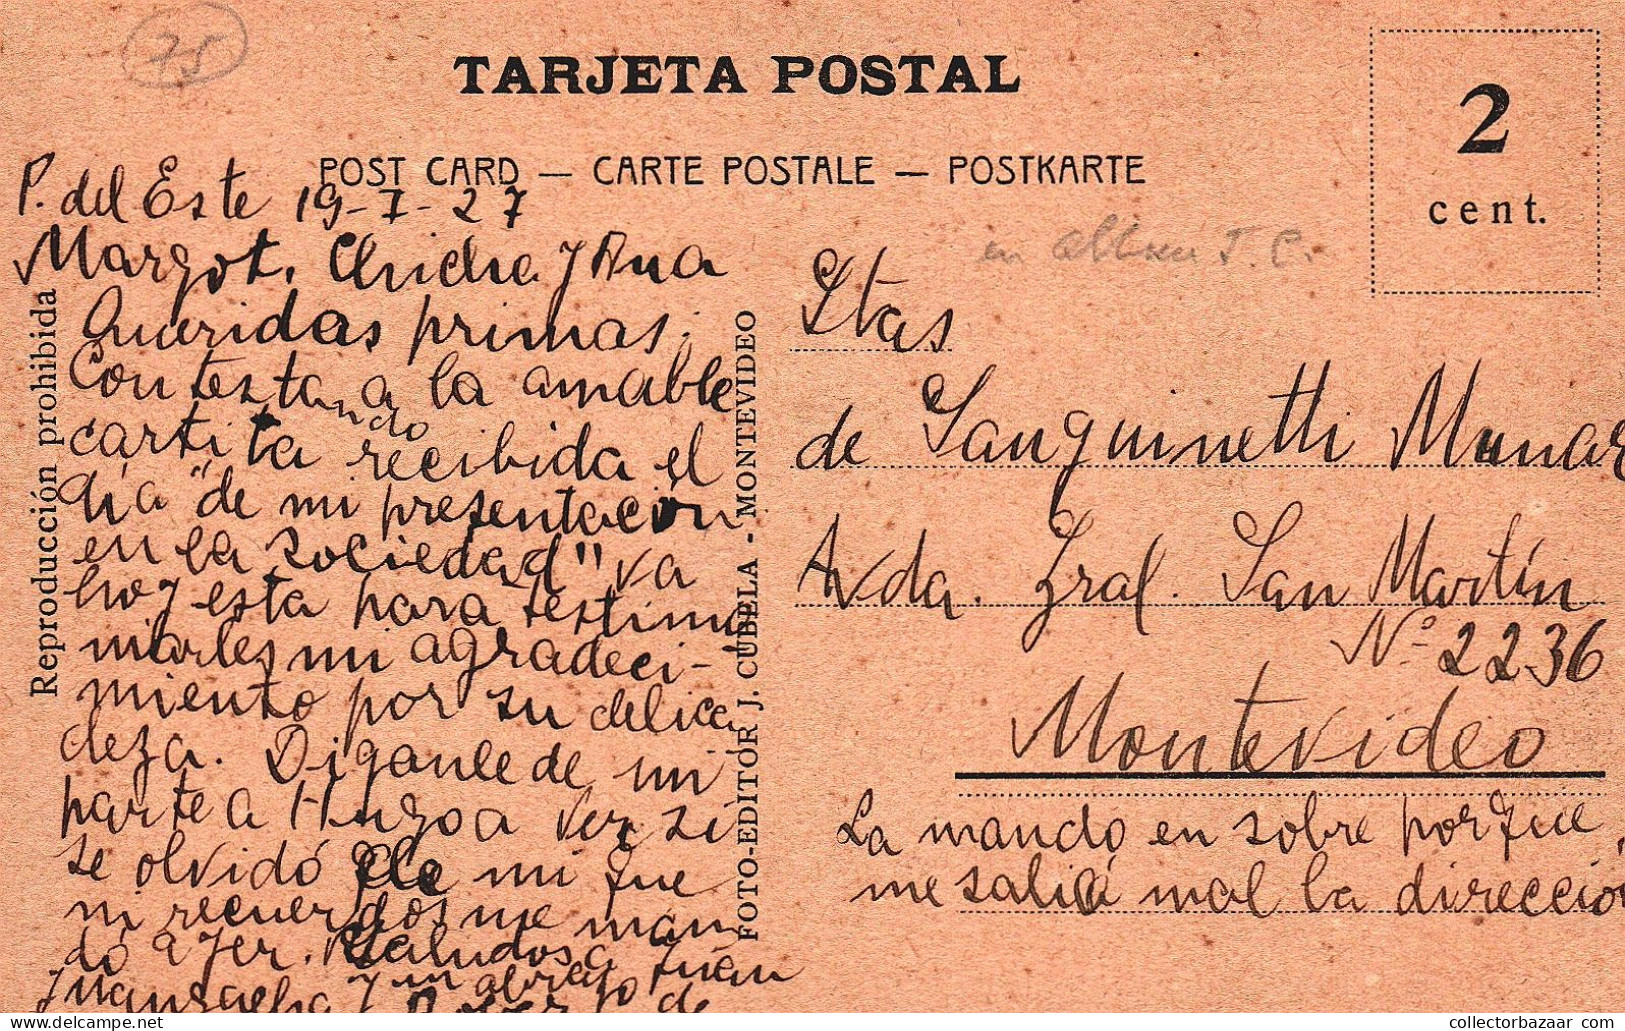 75
TARJETA POSTAL
POST CARD — CARTE POSTALE — POSTKARTE
2
cent.
en album J. C.
P. del Este 19-7-27
Margot, Chicha y Ana
Queridas primas;
Contestando a la amable
cartita recibida el
día "de mi presentación
en la sociedad" va
hoy esta para testimo
niarles mi agradeci-
miento por su delica
deza. Diganle de mi
parte a Hugo a ver si
se olvidó de mi que
ni recuerdos me man
dó ayer. Saludos a Juan
y un abrazo de
Reproducción prohibida
FOTO-EDITOR J. CUBELA - MONTEVIDEO
Stas
de Sanguinetti Munar
Avda. Gral. San Martín
Nº 2236
Montevideo
La mando en sobre porque
me salió mal la dirección
collectorbazaar.com